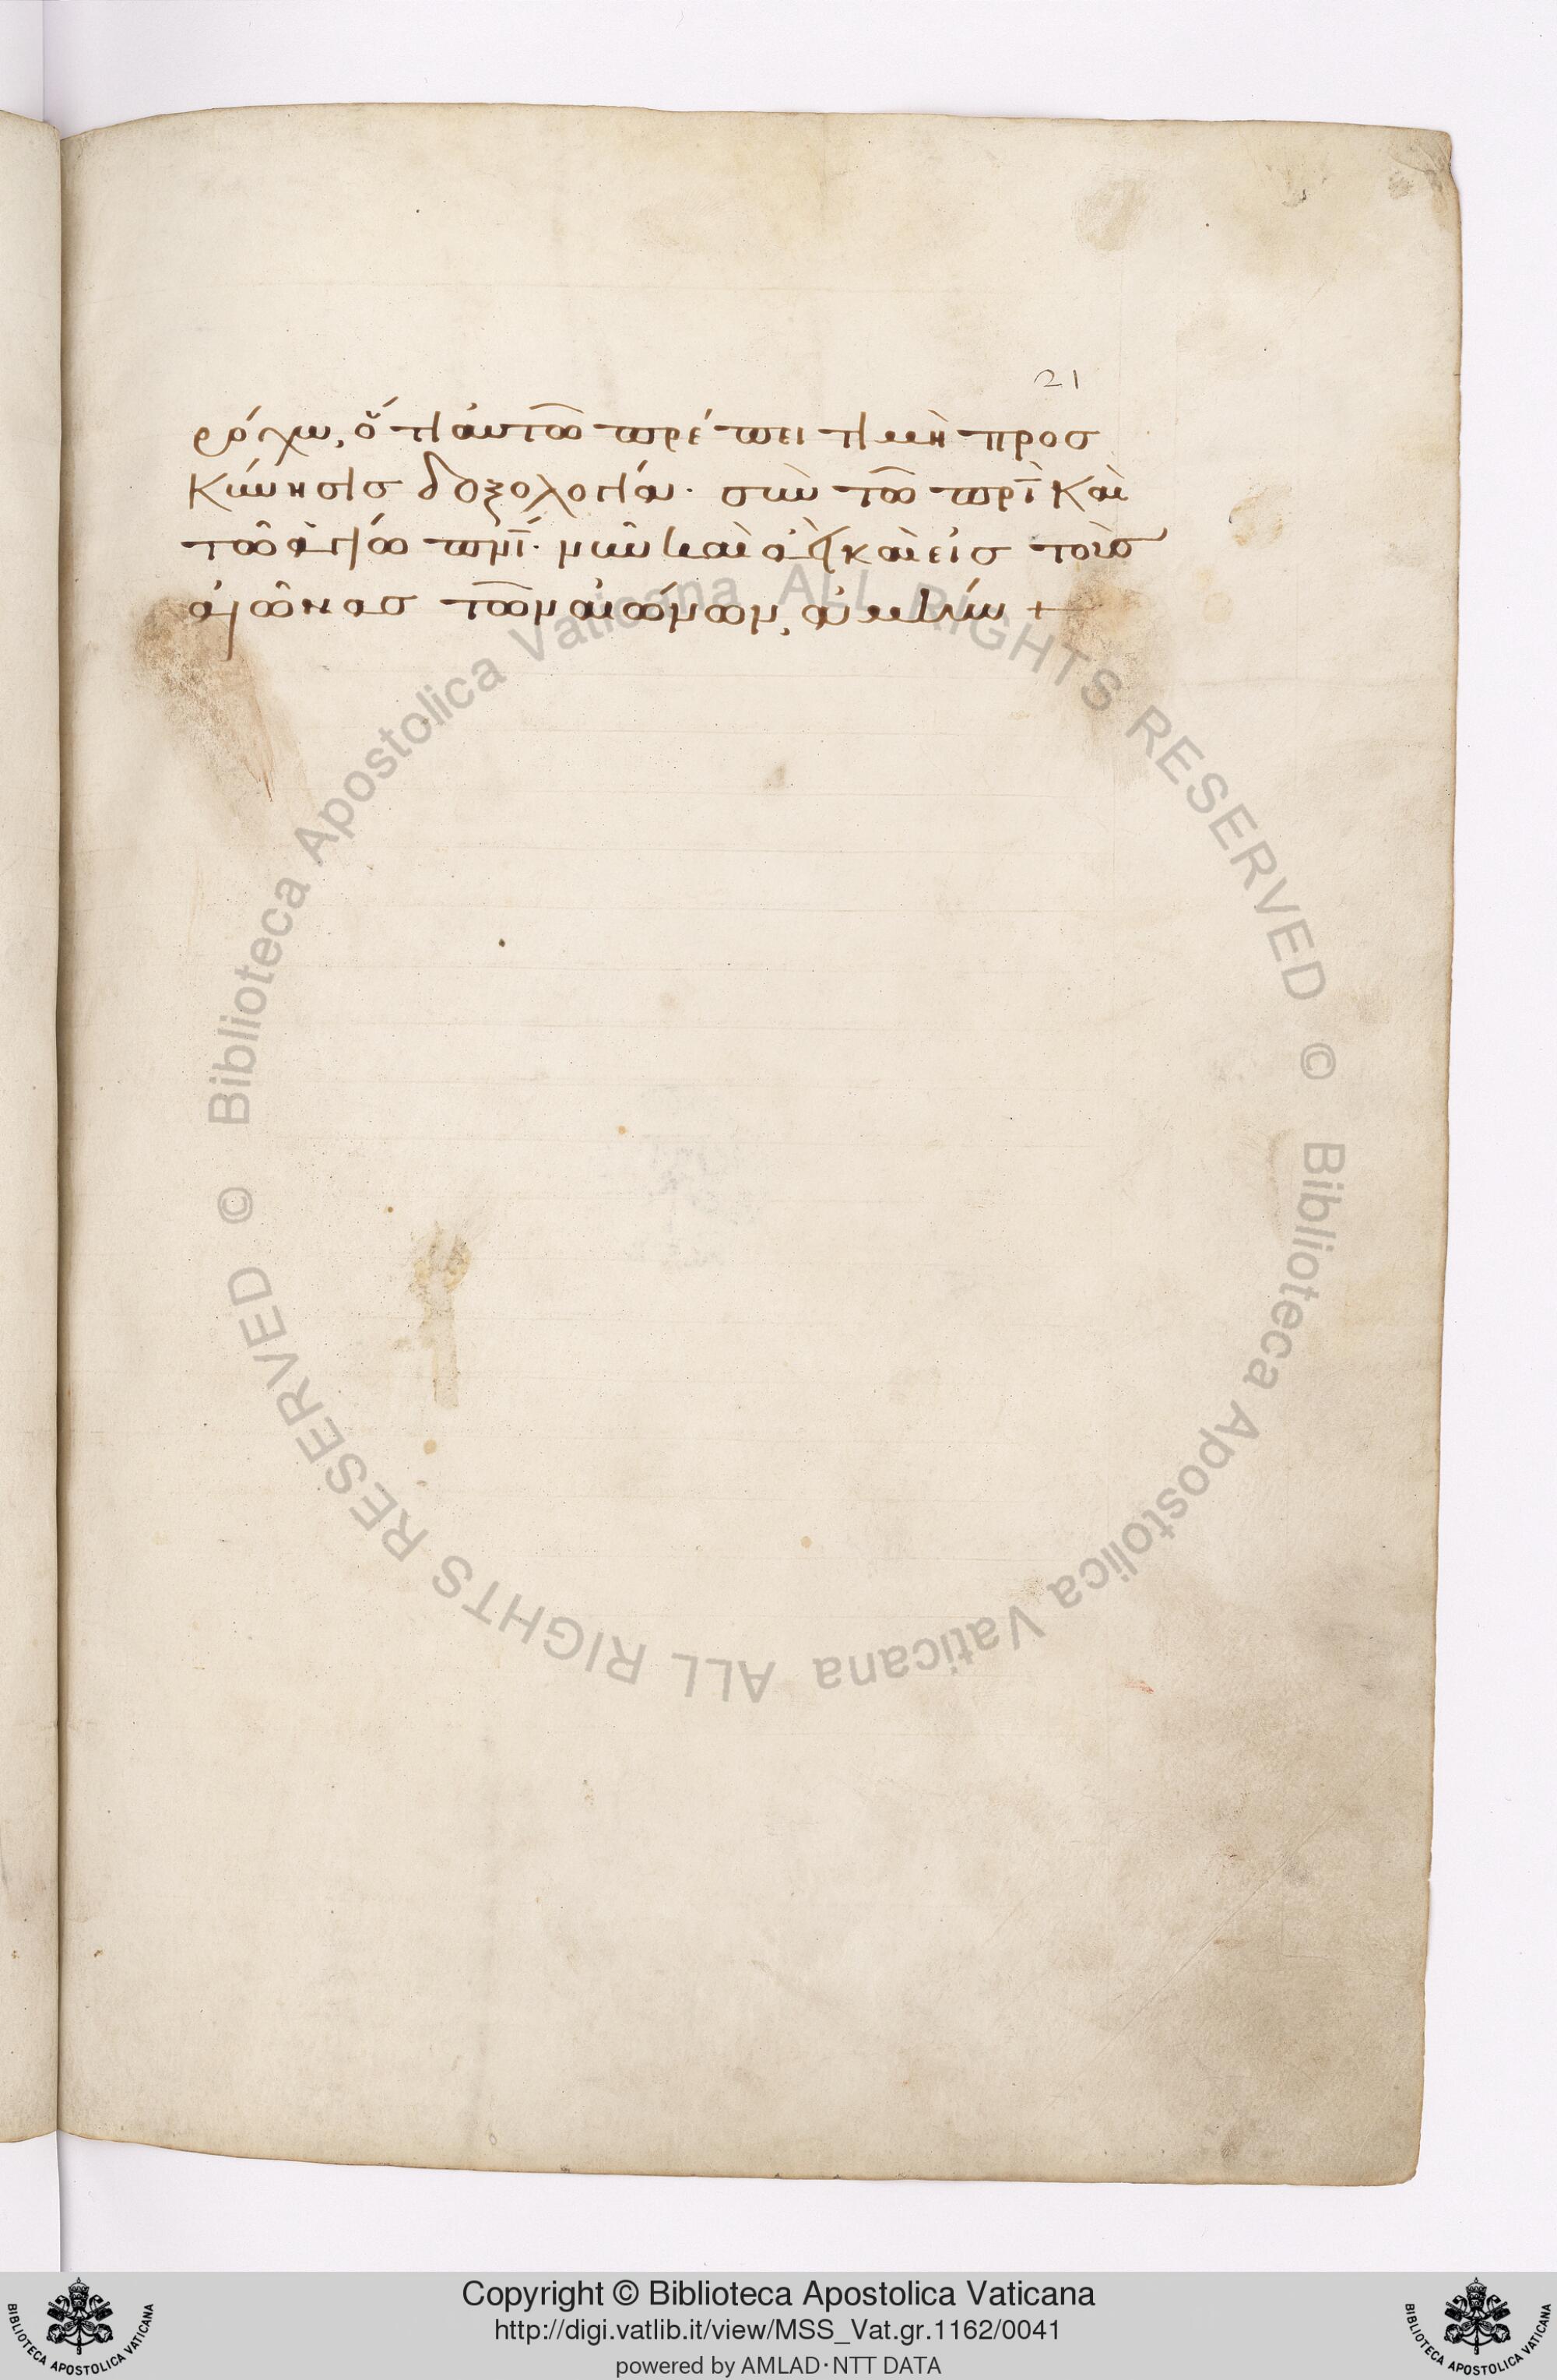 21
ὅτι αὐτῶ πρέπει τιμὴ προσ
κύνησις δοξολογία· σὺν τῶ πρὶ καὶ
τῶ ἁγίω πνὶ· νῦν καὶ ἀεὶ καὶ εἰς τοὺς
αἰῶνας τῶν αἰώνων, ἀμήν +
© Biblioteca Apostolica Vaticana ALL RIGHTS RESERVED
© Biblioteca Apostolica Vaticana ALL RIGHTS RESERVED
BIBLIOTECA APOSTOLICA VATICANA
Copyright © Biblioteca Apostolica Vaticana
http://digi.vatlib.it/view/MSS_Vat.gr.1162/0041
powered by AMLAD·NTT DATA
BIBLIOTECA APOSTOLICA VATICANA